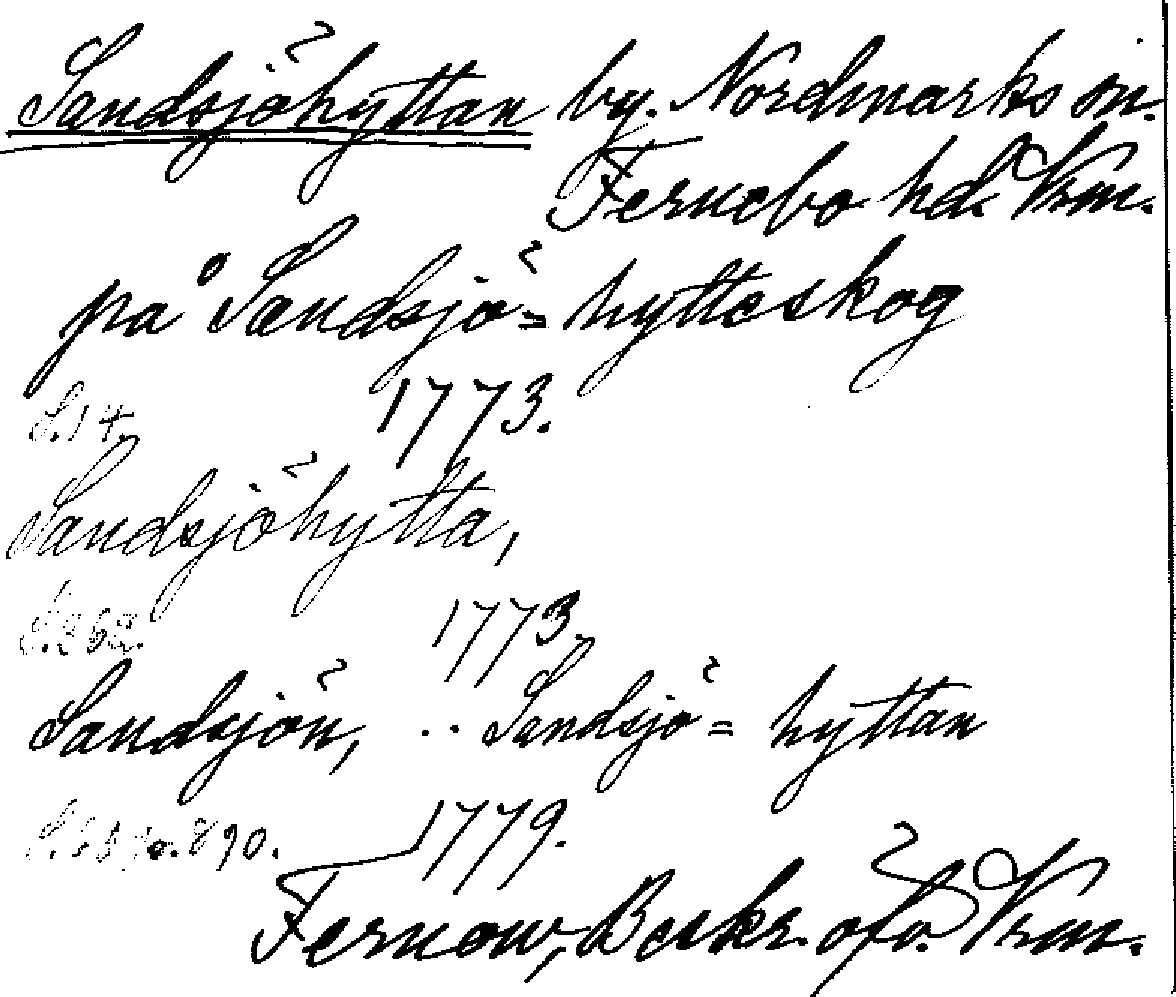 Sandsjöhyttan by. Nordmarks sn.
Fernebo hd. Vrm.
på Sandsjö= hytteskog
S.14. 1773.
Sandsjöhytta,
S.262. 1773.
Sandsjön, .. Sandsjö= hyttan
890. 1779.
Fernow, Beskr. öfv. Vrm.